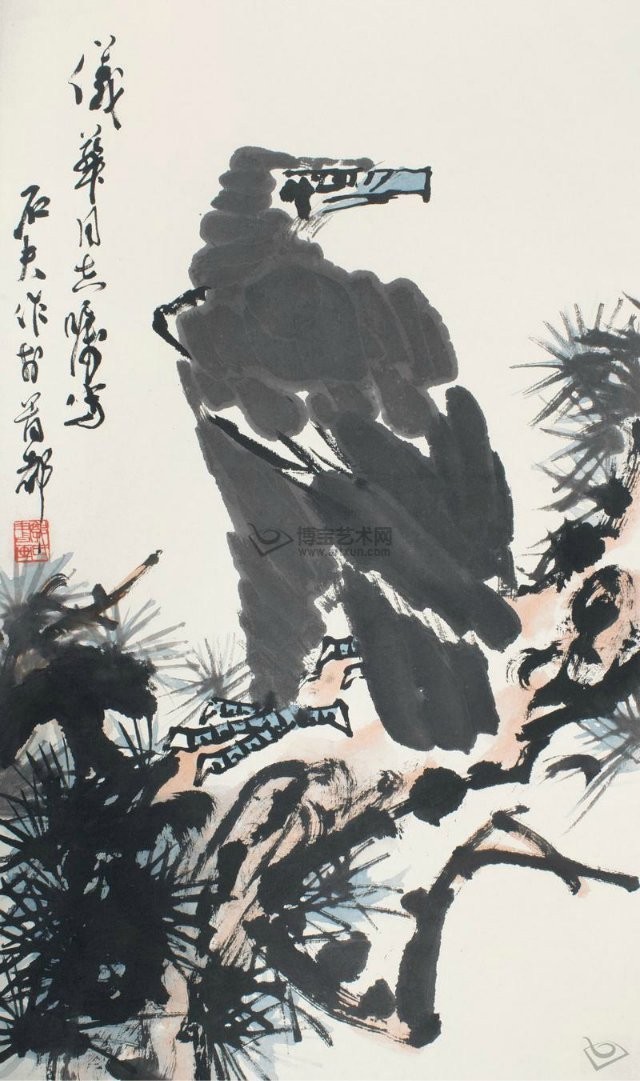 儀華同志嘱写
石夫作於首都
博宝艺术网
www.artrun.com